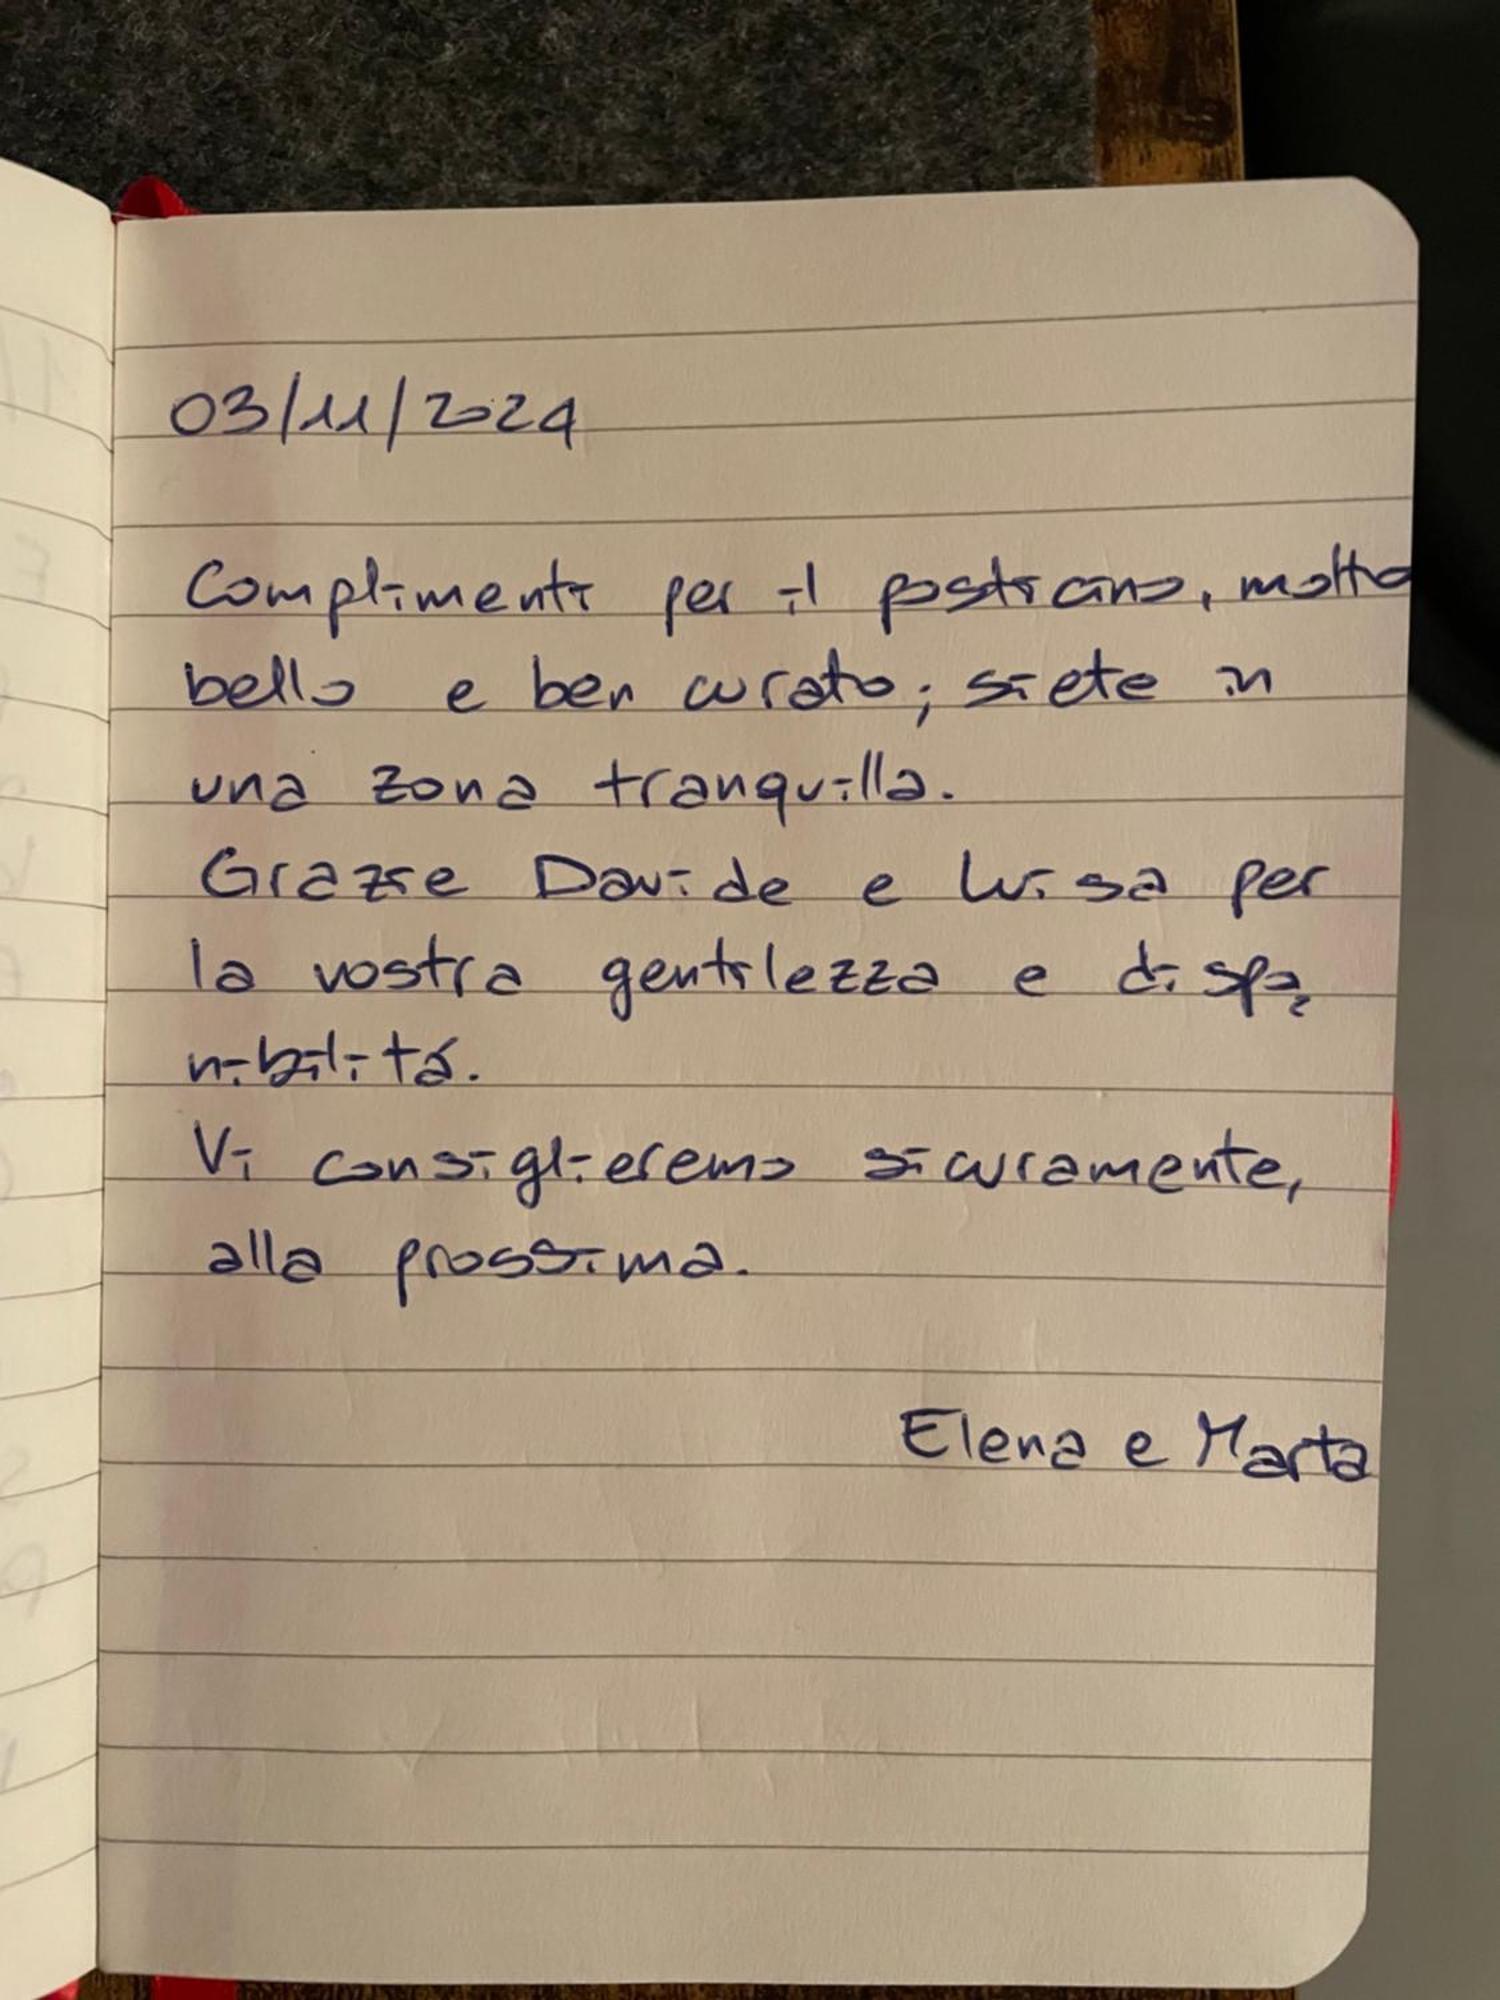 03/11/2024
Complimenti per il posticino, molto
bello e ben curato; siete in
una zona tranquilla.
Grazie Davide e Luisa per
la vostra gentilezza e dispo
nibilitá.
Vi consiglieremo sicuramente,
alla prossima.
Elena e Marta